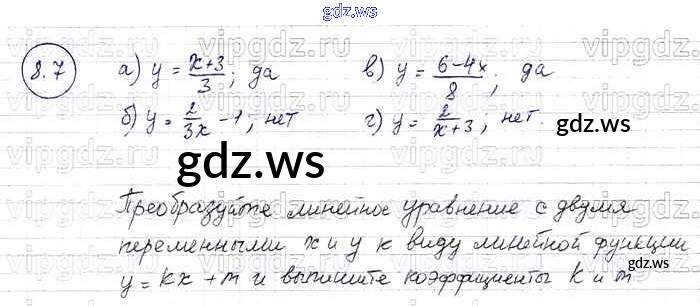 gdz.ws
8.7 а) y = (x+3)/3; да в) y = (6-4x)/8; да
б) y = 2/(3x) - 1; нет г) y = 2/(x+3); нет.
gdz.ws
gdz.ws
Преобразуйте линейное уравнение с двумя
переменными x и y к виду линейной функции
y = kx + m и выпишите коэффициенты k и m
gdz.ws